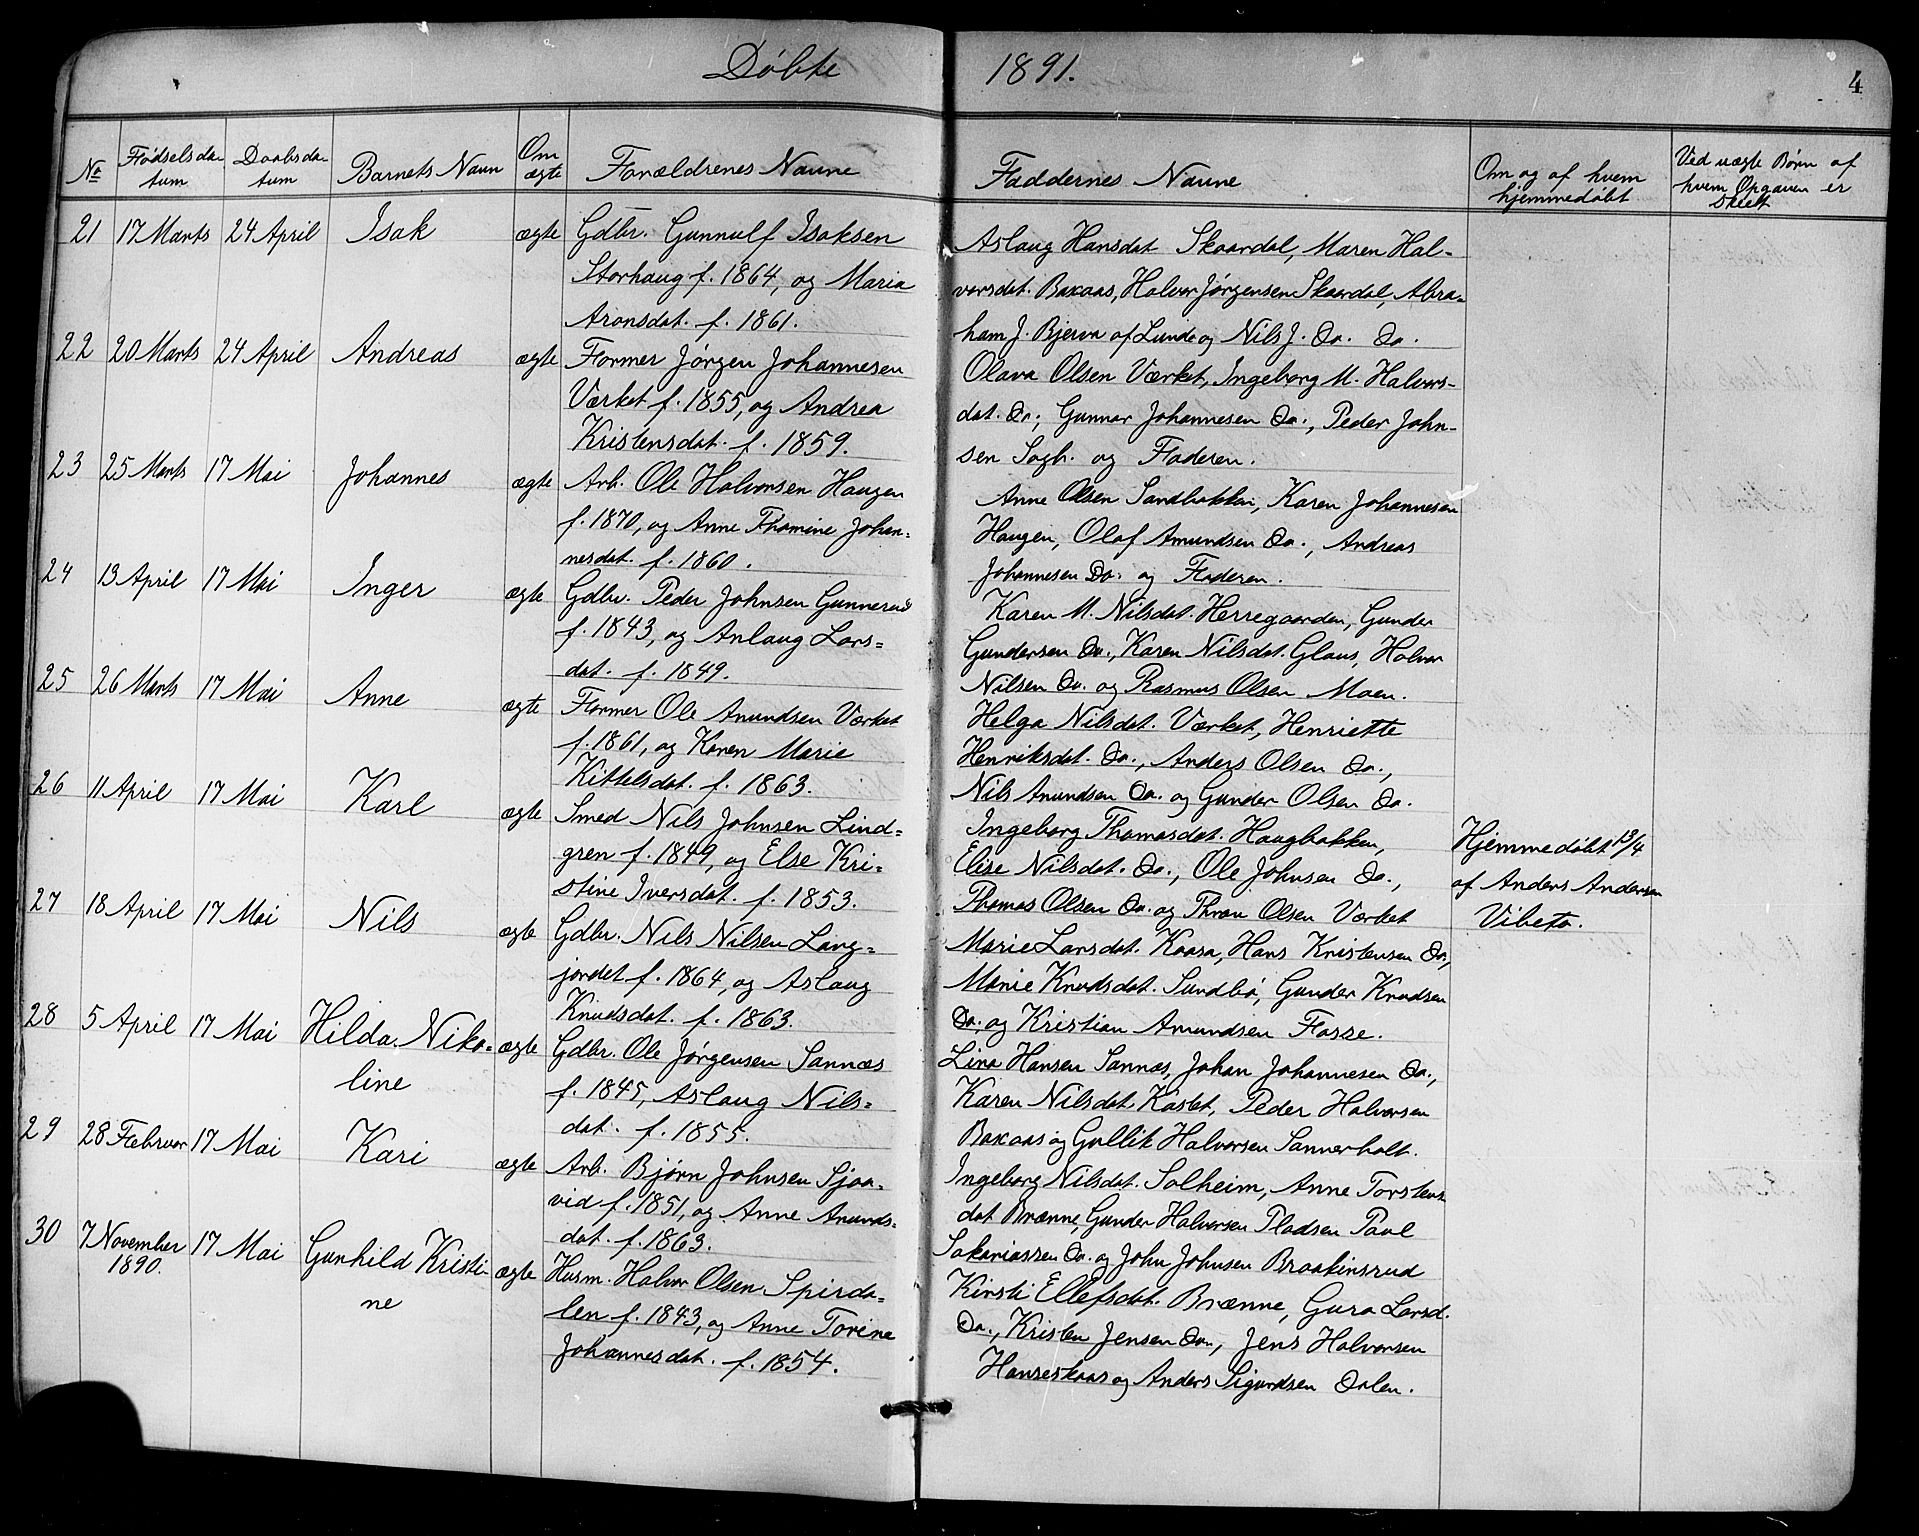 Døbte 1891.
4
No Fødselsda- Daabsda- Barnets Navn Om Forældrenes Navne Faddernes Navne Om og af hvem Ved uægte Børn af
tum tum ægte hjemmedøbt hvem Opgaven er
skeet
21 17 Marts 24 April Isak ægte Gdbr. Gunnulf Isaksen
Storhaug f. 1864, og Maria
Aronsdat. f. 1861.
Aslaug Hansdat Skaardal, Maren Hal-
vorsdat. Baxaas, Halvor Jørgensen Skaardal, Abra-
ham J. Bjerva af Lunde og Nils J. Do. Do.
22 20 Marts 24 April Andreas ægte Former Jørgen Johannesen
Værket f. 1855, og Andrea
Kristensdat. f. 1859.
Olava Olsen Værket, Ingeborg M. Halvors-
dat. Do., Gunnar Johannesen Do., Peder John-
sen Sagh. og Faderen.
23 25 Marts 17 Mai Johannes ægte Arb. Ole Halvorsen Haugen
f. 1870, og Anne Thomine Johan-
nesdat. f. 1860.
Anne Olsen Sandbakken, Karen Johannesen
Haugen, Olaf Amundsen Do., Andreas
Johannesen Do. og Faderen.
24 13 April 17 Mai Inger ægte Gdbr. Peder Johnsen Gunnerud
f. 1843, og Anlaug Lars-
dat. f. 1849.
Karen M. Nilsdat. Herregaarden, Gunder
Gundersen Do., Karen Nilsdat. Glaus, Halvor
Nilsen Do. og Rasmus Olsen Moen.
25 26 Marts 17 Mai Anne ægte Former Ole Anundsen Værket
f. 1861, og Karen Marie
Kittelsdat. f. 1863.
Helga Nilsdat. Værket, Henriette
Henriksdat. Do., Anders Olsen Do.,
Nils Anundsen Do. og Gunder Olsen Do.
26 11 April 17 Mai Karl ægte Smed Nils Johnsen Lind-
gren f. 1849, og Else Kri-
stine Iversdat. f. 1853.
Ingeborg Thomasdat. Haugbakken,
Elise Nilsdat. Do., Ole Johnsen Do.,
Thomas Olsen Do. og Thron Olsen Værket
Hjemmedøbt 13/4
af Anders Andersen
Vibeto.
27 18 April 17 Mai Nils ægte Gdbr. Nils Nilsen Lang-
jordet f. 1864, og Aslaug
Knudsdat. f. 1863.
Marie Larsdat. Kaasa, Hans Kristensen Do.,
Marie Knudsdat. Sundbø, Gunder Knudsen
Do., og Kristian Amundsen Fosse.
28 5 April 17 Mai Hilda Niko-
line ægte Gdbr. Ole Jørgensen Sannæs
f. 1845, Aslaug Nils-
dat. f. 1855.
Lina Hansen Sannæs, Johan Johannesen Do.,
Karen Nilsdat. Kastet, Peder Halvorsen
Baxaas og Gullik Halvorsen Sannerholt.
29 28 Februar 17 Mai Kari ægte Arb. Bjørn Johnsen Sjaa-
vid f. 1851, og Anne Anunds-
dat. f. 1863.
Ingeborg Nilsdat. Solheim, Anne Torstens-
dat Brænne, Gunder Halvorsen Pladsen Paul
Sakariassen Do. og John Johnsen Braakinsrud
30 7 November 17 Mai Gunhild Kristi-
1890. ne ægte Husm. Halvor Olsen Spirda-
len f. 1843, og Anne Torine
Johannesdat. f. 1854.
Kirsti Ellefsdat. Brænne, Gura Larsd.
Do., Kristen Jensen Do., Jens Halvorsen
Hanseskaas og Anders Sigurdsen Dalen.